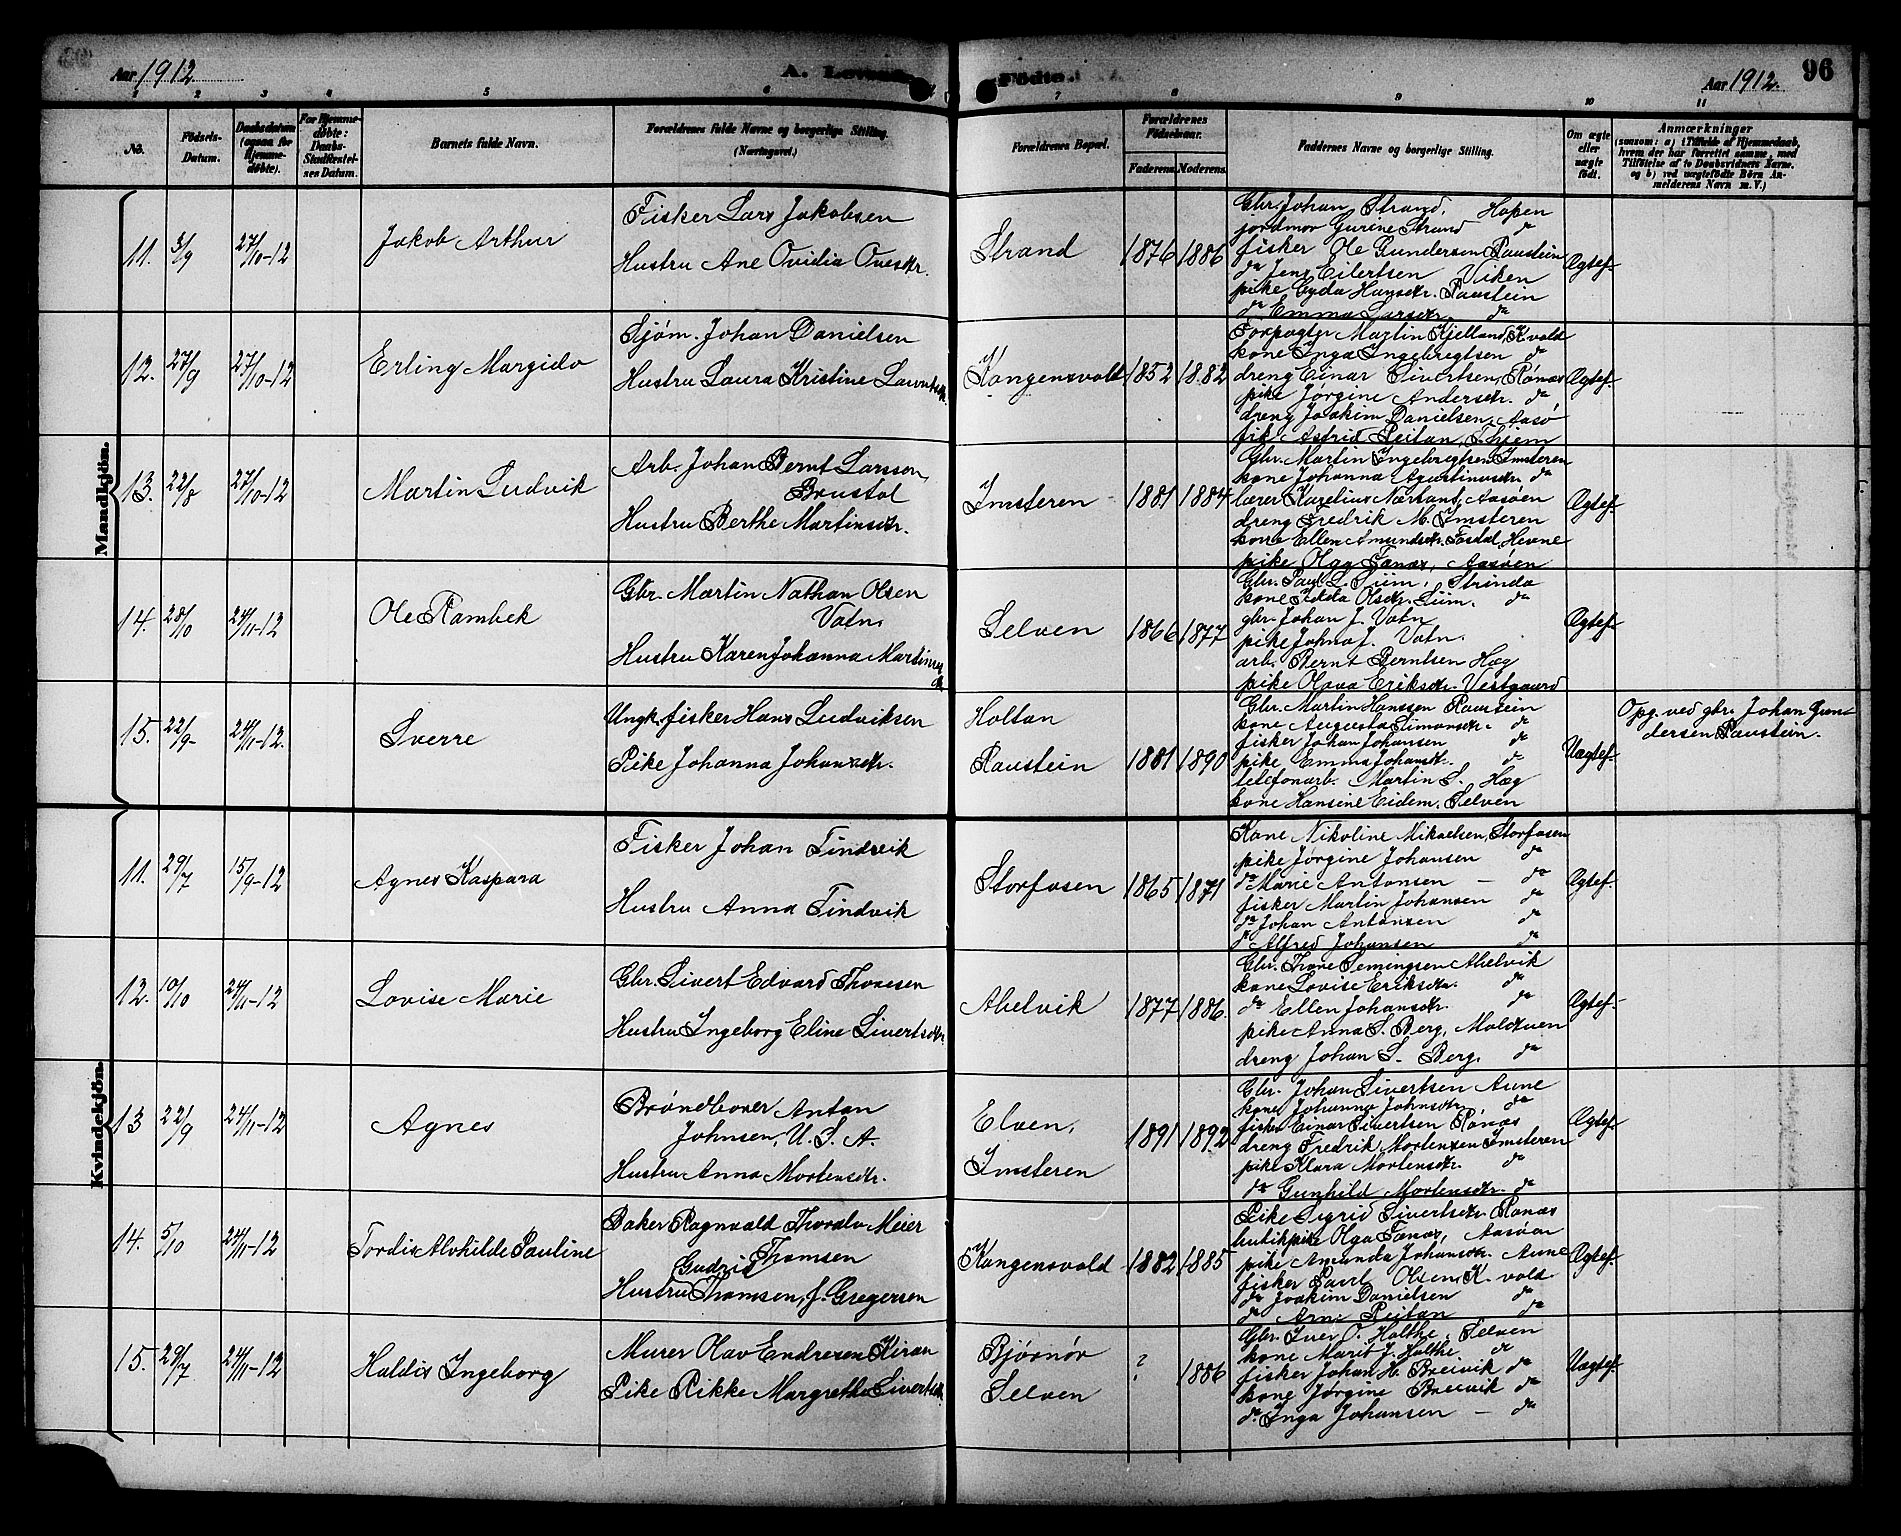 Aar 1912
A. Levende Fødte.
Aar 1912.
96
1 2 3 4 5 6 7 8 9 10 11
No.
Fødsels-
Datum.
Daabsdatum
(ogsaa for
Hjemme-
døbte).
For Hjemme-
døbte:
Daabs-
Stadfæstel-
ses Datum.
Barnets fulde Navn.
Forældrenes fulde Navne og borgerlige Stilling.
(Næringsvei.)
Forældrenes Bopæl.
Forældrenes
Fødselsaar.
Faderens. Moderens.
Faddernes Navne og borgerlige Stilling.
Om ægte
eller
uægte
født.
Anmærkninger
(saasom: a) i Tilfælde af Hjemmedaab,
hvem der har forrettet samme, med
Tilføielse af to Daabsvidners Navne,
og b) ved uægtefødte Børn An-
melderens Navn m. V.)
Mandkjön.
11. 3/9 27/10-12
Jakob Arthur
Fisker Lars Jakobsen
Hustru Ane Ovidia Ovesdtr.
Strand
1876 1886
Gbr. Johan Strand, Hopen
jordmor Gurine Strand do
fisker Ole Gundersen Raustein
do Jens Eilertsen Viken
pike Gyda Hansdtr. Raustein
do Emma Larsdtr. do
Ægtef.
12. 27/9 27/10-12
Erling Margido
Sjøm. Johan Danielsen
Hustru Laura Kristine Lauritsdtr.
Kongensvold
1852 1882
Forpagter Martin Kjelland, K.vold
kone Inga Ingebregtsen do
dreng Einar Sivertsen, Rønas
pike Jørgine Andersdtr. do
dreng Joakim Danielsen, Aasø
frk. Astrid Reitan, Thjem
Ægtef.
13. 22/8 27/10-12
Martin Ludvik
Arb. Johan Bernt Larsson
Brustøl
Hustru Berthe Martinsdtr.
Imsteren
1881 1884
Gbr. Martin Ingebregtsen Imsteren
kone Johanna Agustinusdtr. do
lærer Karelius Nærland, Aasøen
dreng Fredrik M. Imsteren
kone Ellen Amundsdtr. Hevne
pike Olga Fanas, Aasøen
Ægtef.
14. 28/10 24/11-12
Ole Rambek
Gbr. Martin Nathan Olsen
Vatn.
Hustru Karen Johanna Martinus
dtr.
Selven
1866 1877
Gbr. Paul L. Siim, Strinda
kone Olsdtr. Siim. do
gbr. Johan J. Vatn
pike Johna J. Vatn.
arb. Bernt Berntsen Hæg
pike Olava Eriksdtr. Vestgaard
Ægtef.
15. 22/9- 24/11-12.
Sverre
Ungk. fisker Hans Ludviksen
Pike Johanna Johansdtr.
Holtan
Raustein
1881 1890
Gbr. Martin Hanssen Raustein
kone Augusta Simonsdtr. do
fisker Johan Johansen do
pike Emma Johansdtr. do
telefonarb. Martin S. Hæg
kone Hansine Eidem, Selven
Uægtef.
Opg. ved gbr. Johan Gun-
dersen Raustein.
Kvindekjön.
11. 29/7 15/9-12
Agnes Kaspara
Fisker Johan Tindvik
Hustru Anna Tindvik
Storfosen
1865 1871
Kone Nikoline Mikaelsen, Storfosen
pike Jørgine Johansen do
do Marie Antonsen - do
fisker Martin Johansen do
do Johan Antonsen do
do Alfred Johansen do
Ægtef.
12. 10/10 24/11-12
Lovise Marie
Gbr. Sivert Edvard Thonesen
Hustru Ingeborg Eline Sivertsdtr.
Abelvik
1877 1886.
Gbr. Thone Semingsen Abelvik
kone Lovise Eriksdtr. do
do Ellen Johansdtr. do
pike Anna S. Berg, Moldtuen
dreng Johan S. Berg. do
Ægtef.
13 22/9 24/11-12
Agnes
Brøndborer Anton
Johnsen, U. S. A.
Hustru Anna Mortensdtr.
Elven,
Imsteren
1891 1892
Gbr. Johan Sivertsen Aune
kone Johanna Johnsdtr. do
fisker Einar Sivertsen Rønas
dreng Fredrik Mortensen Imsteren
pike Klara Mortensdtr. do
do Gunhild Mortensdtr. do
Ægtef.
14. 5/10 24/11-12
Tordis Alvhilde Pauline
Baker Ragnvald Thoralv Meier
Thomsen
Gudrid
Hustru Thomsen, f. Gregersen
Kongensvold
1882 1885
Pike Sigrid Sivertsdtr. Rønas
butikpike Olga Fanas, Aasøen
pike Amanda Johansdtr. Aune
fisker Paul Olsen, K. vold
do Joakim Danielsen do
do Arne Reitan do
Ægtef.
15. 29/7 24/11-12
Haldis Ingeborg
Murer Olav Endresen Kiran
Pike Rikke Margrethe Sivertsdtr.
Bjørnør
Selven
? 1886
Gbr. Iver O. Holthe, Selven
kone Marit J. Holthe do
fisker Johan H. Breivik do
kone Jørgine Breivik do
do Inga Johansen - do
Uægtef.